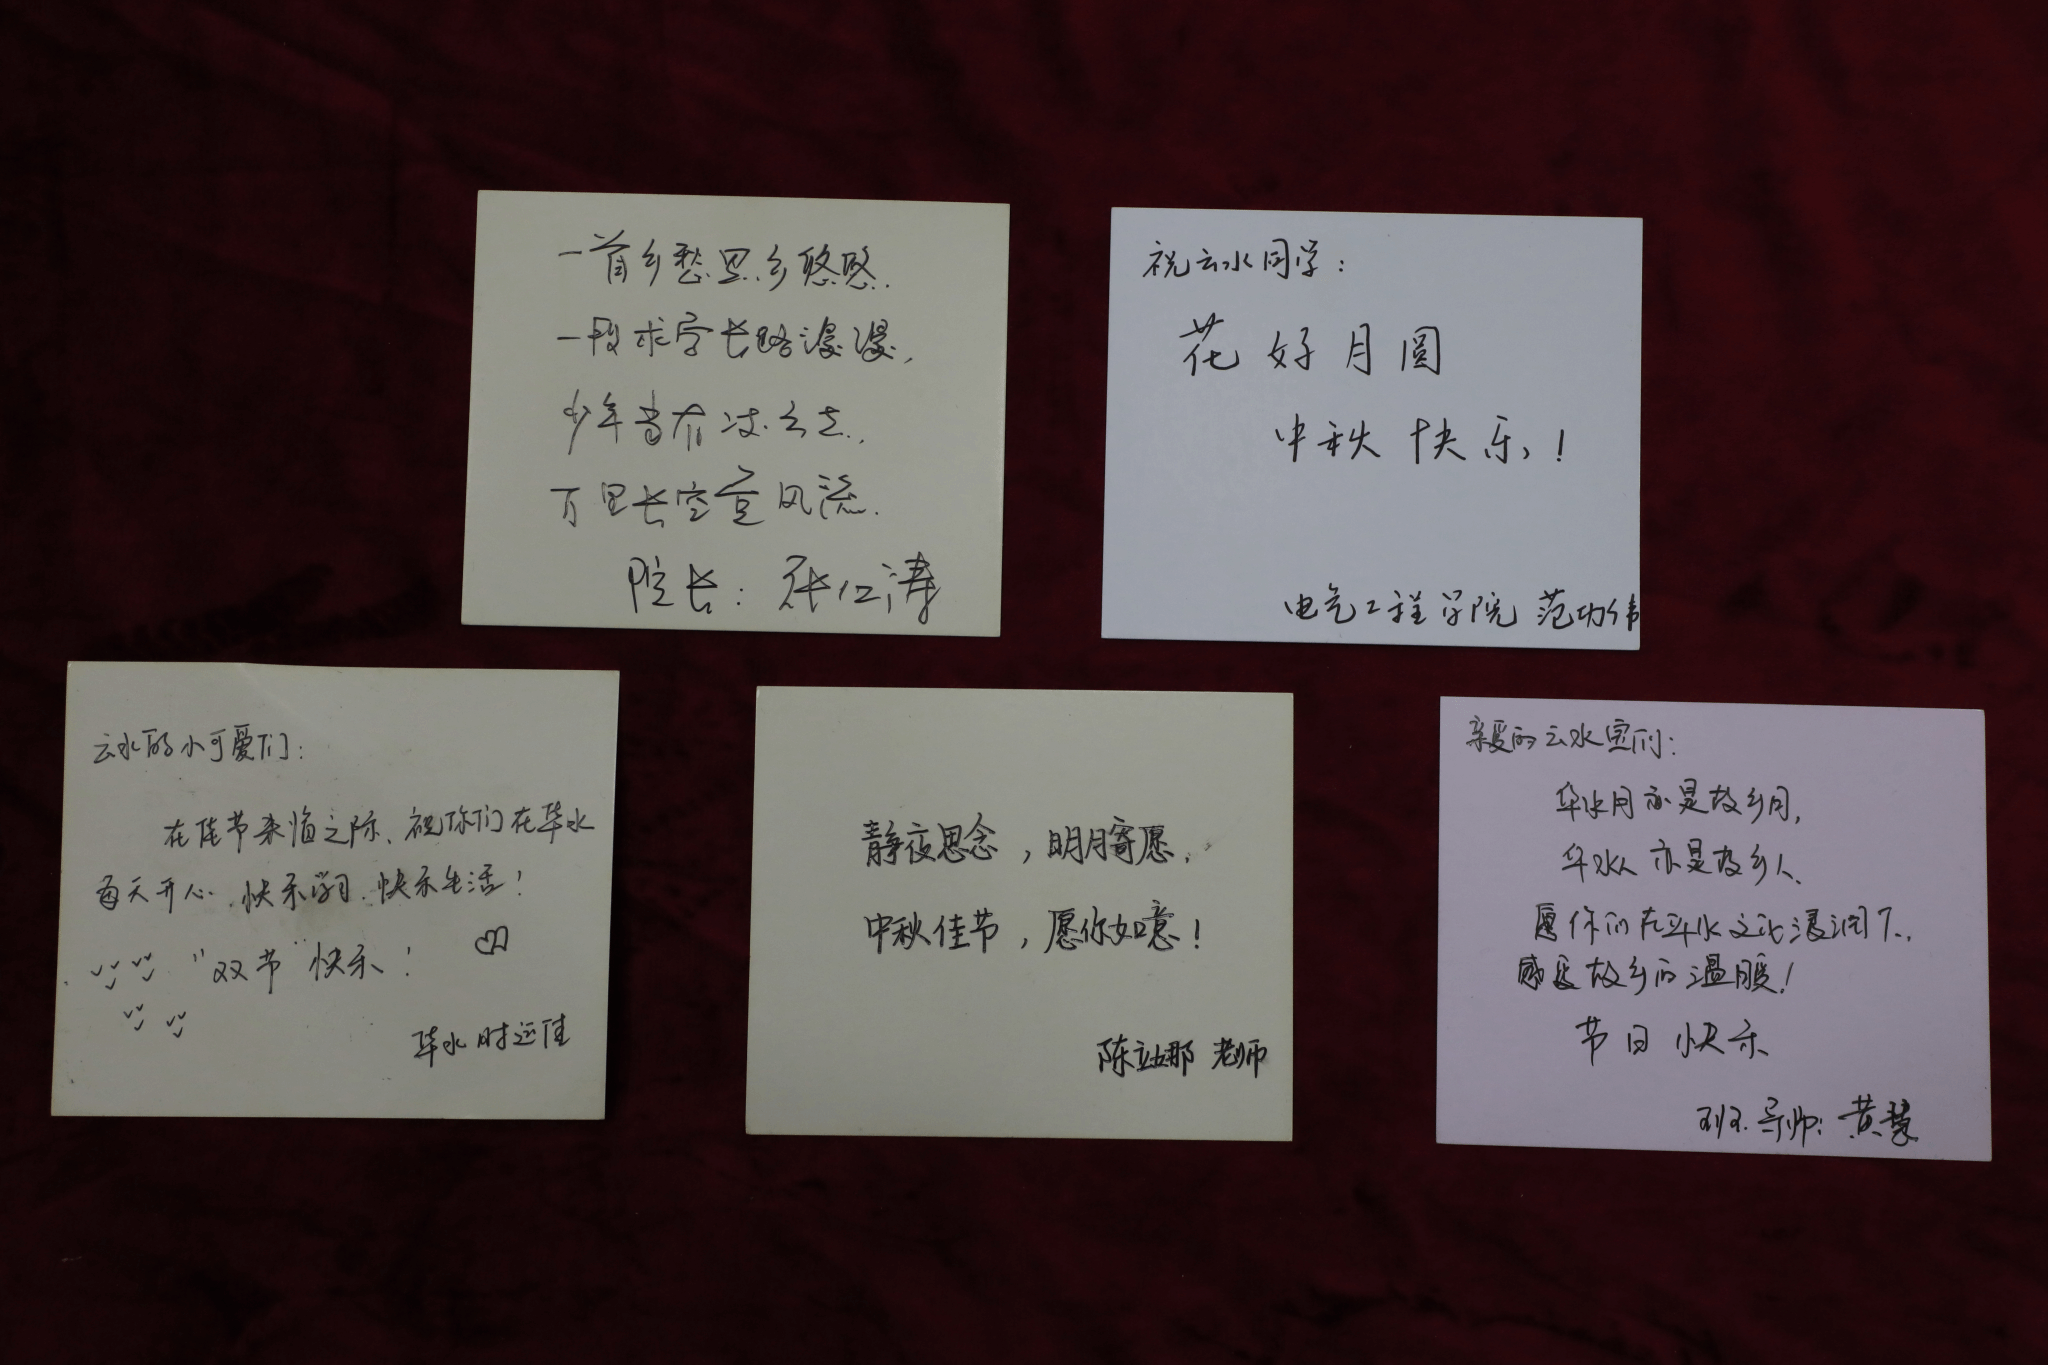 一首乡愁思乡悠悠.
一段求学长路漫漫,
少年当有凌云志,
万里长空竞风流.
院长: 张仁涛
祝云水同学:
花好月圆
中秋快乐!
电气工程学院 范功伟
云水的小可爱们:
在佳节来临之际、祝你们在华水
每天开心.快乐学习.快乐生活!
"双节"快乐!
华水 时运佳
静夜思念,明月寄愿,
中秋佳节,愿你如意!
陈立娜 老师
亲爱的云水宝们:
华水月亦是故乡月,
华水人亦是故乡人、
愿你们在华水文化浸润下,
感受故乡的温暖!
节日快乐
班导师: 黄慧